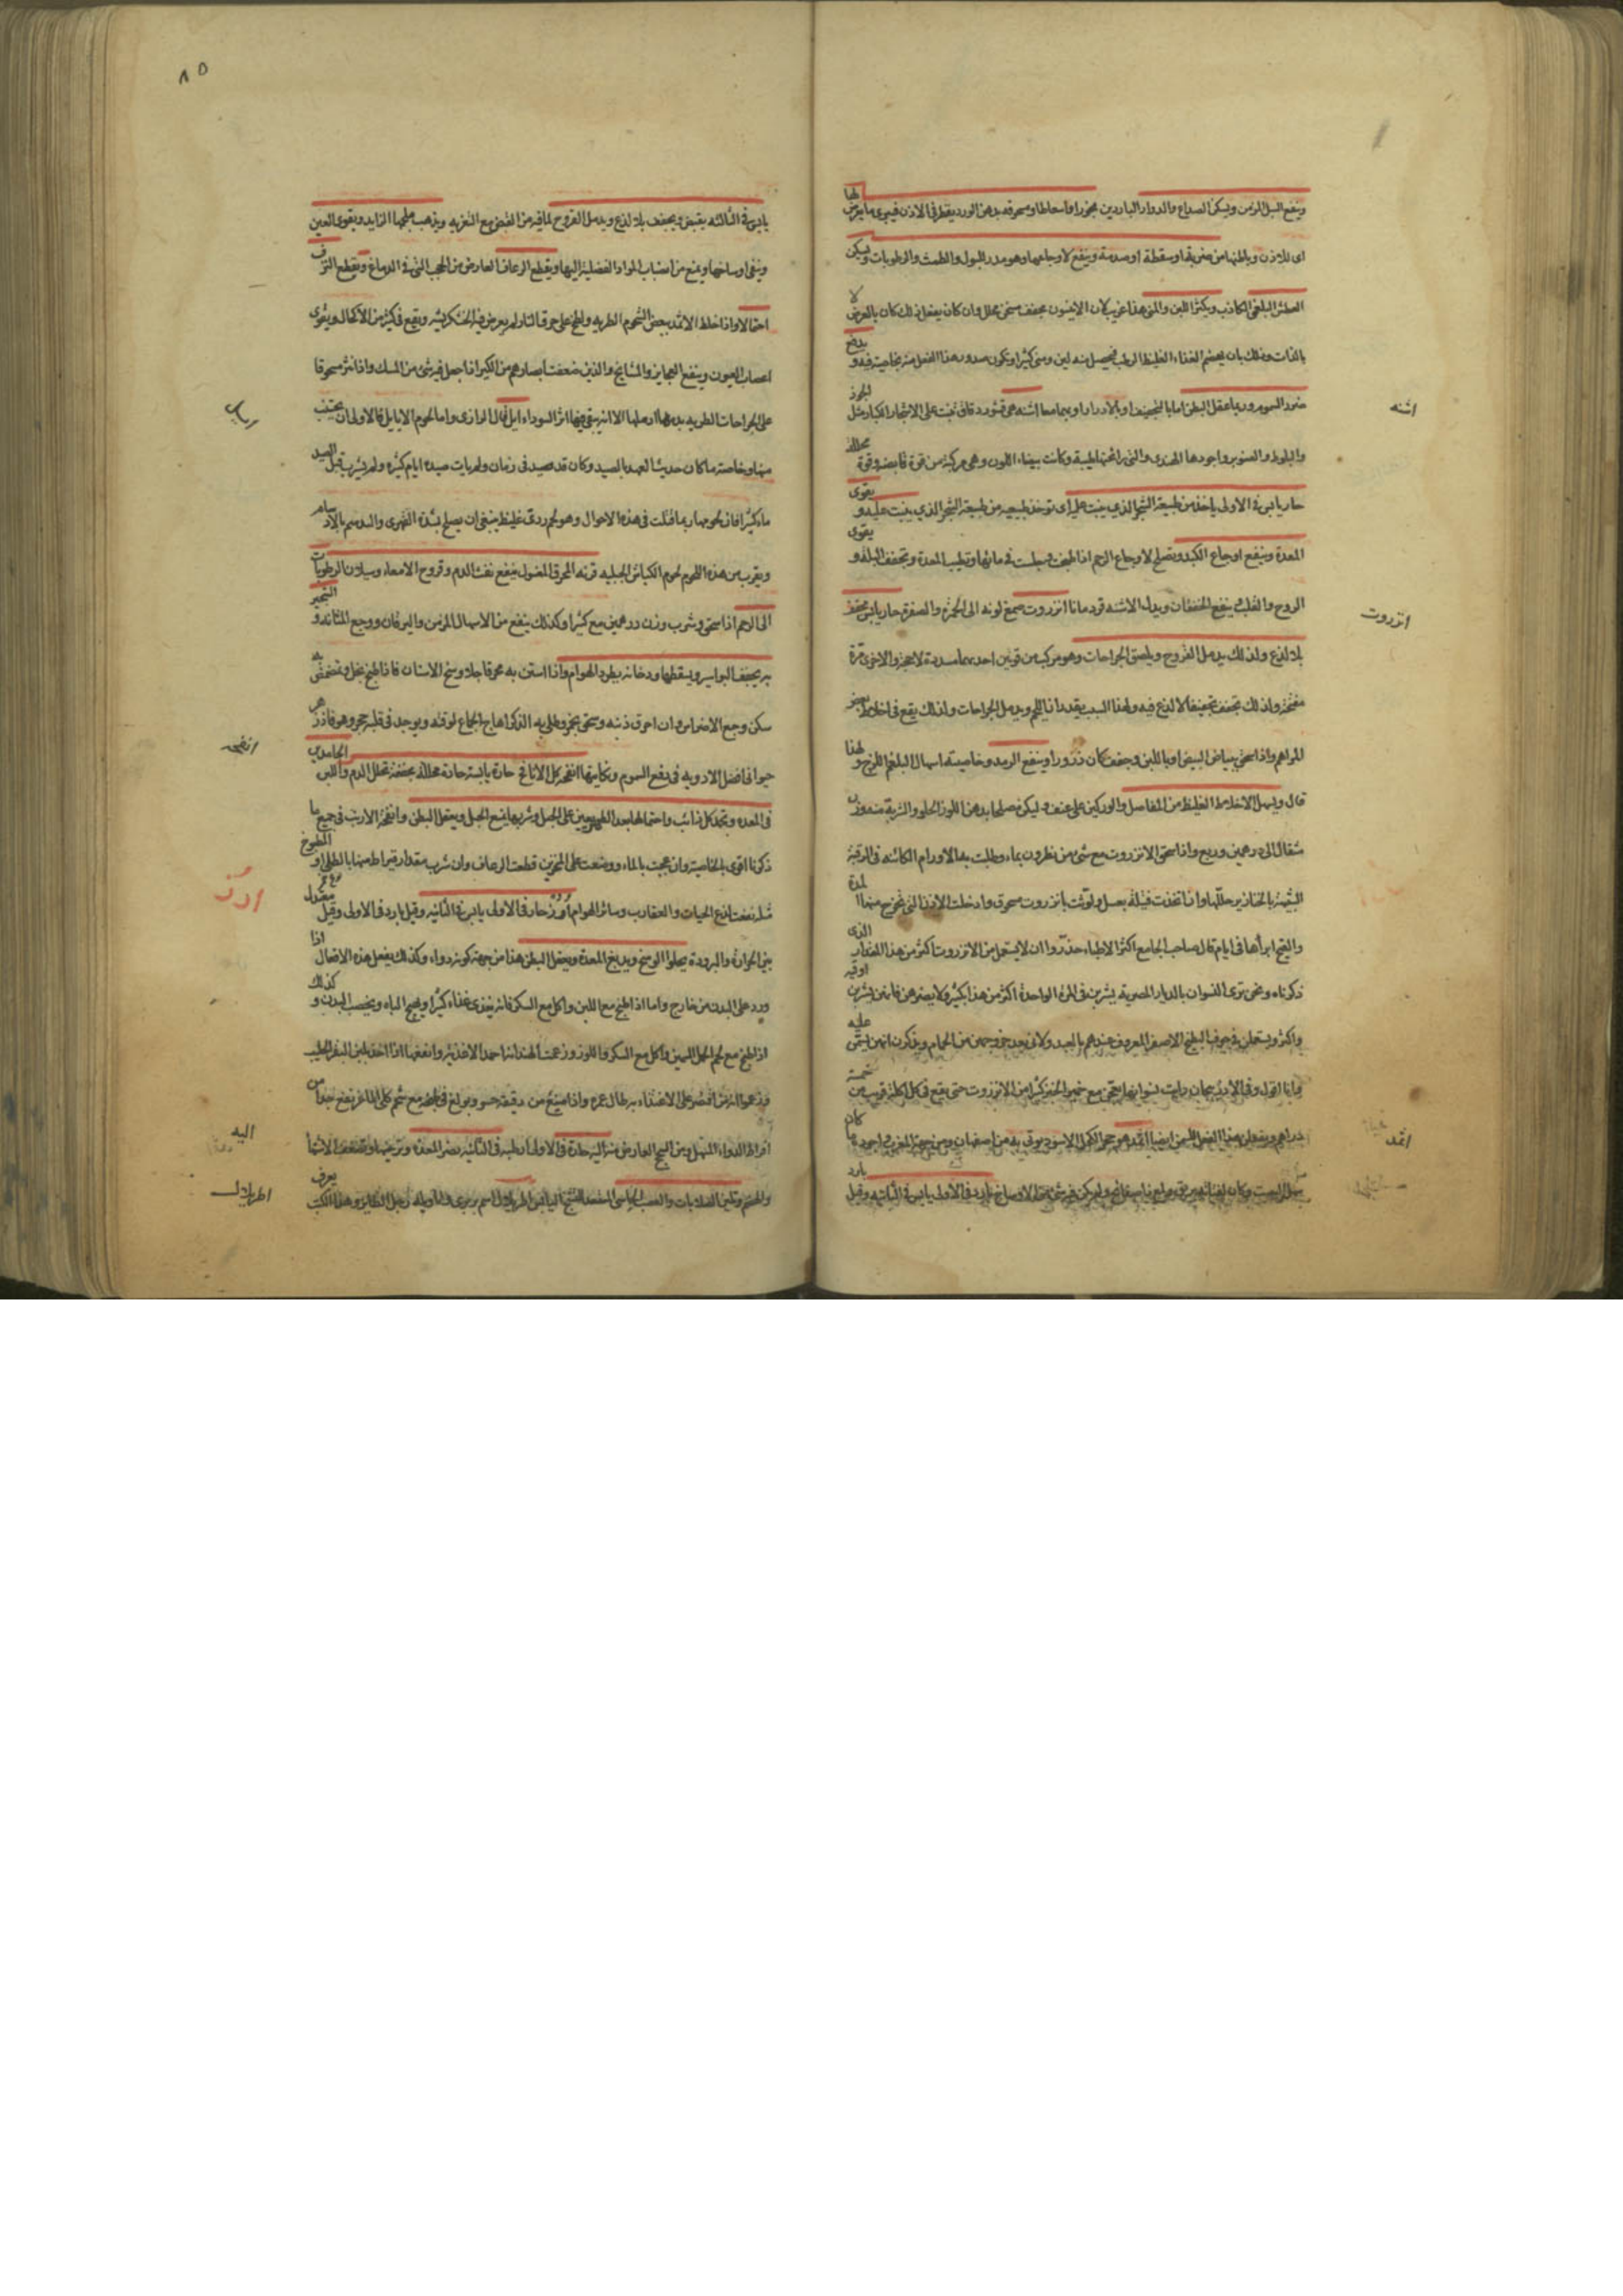 وينفع السبل المزمن ويسكن الصداع والدوار الباردين بخورا واسعاطا ومسحوقه بدهن الورد يقطر في الاذن فيبرئ ما يعرض لها
اى للاذن وباطنها من ضربة او سقطة او صدمة وينفع لاوجاعها وهو مدر للبول والطمث والرطوبات ويسكن
العطش البلغمى الكاذب ويكثر اللبن والمنى هذا غريب لان الانيسون مجفف مسخن محلل وان كان يفعل ذلك كان بالعرض لا
بالذات وذلك بان يهضم الغذاء الغليظ الرطب فيحصل منه لبن ومنى كثير او يكون صدور هذا الفعل منه بخاصية فيه ويدفع
ضرر السموم وربما عقل البطن اما بالتجفيف او بالادرار او بهما معا اشنه هى قشور دقاق تنبت على الاشجار الكبار مثل الجوز
والبلوط والصنوبر واجودها الهندى والتى رائحتها طيبة وكانت بيضاء اللون وهى مركبة من قوة قابضة وقوة محللة
حار يابس في الاولى ياخذ من طبيعة الشجر الذي ينبت عليه اى توخذ طبيعته من طبيعة الشجر الذي ينبت عليه ويقوى
المعدة وينفع اوجاع الكبد ويصلح لاوجاع الرحم اذا طبخت وجلست في مائها وتطيب المعدة وتجفف البلة ويقوى
الروح والقلب فينفع الخفقان وبدل الاشنه قردمانا انزروت صمغ لونه الى الحمرة والصفرة حار يابس يجفف
بلا لذع ولذلك يدمل القروح ويلصق الجراحات وهو مركب من قوتين احديهما مسددة لاحجة والاخرى مرة
مفتحة ولذلك تجفف تجفيفا لا لذع فيه ولهذا السبب يقدر ان يلحم ويدمل الجراحات ولذلك يقع في اخلاط بعض
المراهم واذا سحق ببياض البيض او باللبن وجفف كان ذرورا وينفع الرمد وخاصيته اسهال البلغم اللزج ولهذا
قال ويسهل الاخلاط الغليظ من المفاصل والوركين على عنف وليكن مصلحا بدهن اللوز الحلو والشربة منه وزن
مثقال الى درهمين وربع واذا سحق الانزروت مع شئ من نطرون بماء وطليت به الاورام الكائنه في الرقبة
الشبيهة بالخنازير حللها وان اتخذت فتيلة بعسل ولوثت بانزروت مسحوق وادخلت الاذن التى تخرج منها المدة
والقيح ابرأها في ايام قال صاحب الجامع اكثر الاطباء حذروا ان لا يستعمل من الانزروت اكثر من هذا المقدار الذى
ذكرناه ونحن نرى النسوان بالديار المصرية يشربن في المرة الواحدة اكثر من هذا بكثير ولا يضرهن فانهن يشربن اوقية
واكثر ويستعملن في جوف البطيخ الاصفر المعروف عندهم بالعبدلاوى بعد خروجهن من الحمام ويذكرن انهن يسمن عليه
وانا اقول وفي الاذربيجان رايت نسوانها يعجن مع خمير الخبز كثيرا من الانزروت حتى يقع في كل اكلة قريب من خمسة
دراهم ويفعلن هذا الفعل للسمن ايضا اثمد هو حجر الكحل الاسود يوتى به من اصفهان ومن جهة المغرب واجوده ما كان
اشنه
انزروت
اثمد
يابس في الثالثه يقبض ويجفف بلا لذع ويدمل القروح لما فيه من القبض مع التغريه ويذهب بلحمها الزايد ويقوى العين
وينقى اوساخها ويمنع من انصباب المواد الفضلية اليها ويقطع الرعاف العارض من الحجب التى في الدماغ ويقطع النزف
احتمالا واذا خلط الاثمد ببعض الشحوم الطريه ولطخ على حرق النار لم يعرض فيه الخشكريشه ويقع في كثير من الاكحال ويقوى
اعصاب العيون وينفع العجايز والمشايخ والذين ضعفت ابصارهم من الكبر اذا جعل فيه شئ من المسك واذا نثر مسحوقا
على الجراحات الطريه بدمها ادملها الا انه يبقى فيها اثر السوداء ايل قال الرازى واما لحوم الايايل فالاولى ان يجتنب
منها وخاصته ما كان حديث العهد بالصيد وكان قد صيد في زمان ولم يات صيده ايام كثيره ولم يشرب قبل الصيد
ماء كثيرا فان لحومها ربما قتلت في هذه الاحوال وهو لحم ردى غليظ ينبغى ان يصلح بشدة التهرى والتدسم بالادسام
ويقرب من هذه اللحوم لحوم الكباش الجبليه قرنه المحرق المغسول ينفع نفث الدم وقروح الامعاء وسيلان الرطوبات
الى الرحم اذا سحق وشرب وزن درهمين مع كثيرا وكذلك ينفع من الاسهال المزمن واليرقان ووجع المثانه والتبخير
به يجفف البواسير ويسقطها ودخانه يطرد الهوام واذا استن به محرقا جلا وسخ الاسنان فاذا طبخ بخل وتمضمض به
سكن وجع الاضراس وان احرق ذنبه وسحق بخمر وطلى به الذكر اهاج الجماع لوقته ويوجد في قلبه حجر وهو فاذزهر
حيوانى افضل الادويه في دفع السموم ونكايتها انفحه كل الانافح حارة يابسة حادة محللة مجففة تحلل الدم واللبن الجامدين
في المعده وتجمد كل ذائب واحتمالها بعد الطهر يعين على الحبل وشربها يمنع الحبل ويعقل البطن وانفحة الارنب في جميع ما
ذكرنا اقوى بالخاصية وان عجنت بالماء ووضعت على المنخرين قطعت الرعاف وان شرب مقدار قيراط منها بالطلى او المطبوخ
مثله نفعت لذع الحيات والعقارب وسائر الهوام ارز حار في الاولى يابس في الثانيه وقيل بارد في الاولى وقيل معتدل
بين الحرارة والبرودة يجلو الوسخ ويدبغ المعدة ويعقل البطن هذا من جهة كونه دواء وكذلك يفعل هذه الافعال اذا
ورد على البدن من خارج واما اذا طبخ مع اللبن واكل مع السكر فانه يغذى غذاء كثيرا ويهيج الباه ويخصب البدن وكذلك
اذا طبخ مع لحم الحمل السمين واكل مع السكر واللوز وزعمت الهند انه احمد الاغذية وانفعها اذا اخذ بلبن البقر الحليب
وزعموا ان من اقتصر على الاغتذاء به طال عمره واذا صنع من دقيقه حسو وبولغ في طبخه مع شحم كلى الماعز نفع جدا من
افراط الدواء المسهل ومن السحج العارض منه اليه حارة في الاولى رطبه في الثانيه تضر المعده وترخيها وتضعف الاشتها
ايل
انفحه
ارز
اليه
اطريلال
٨٥